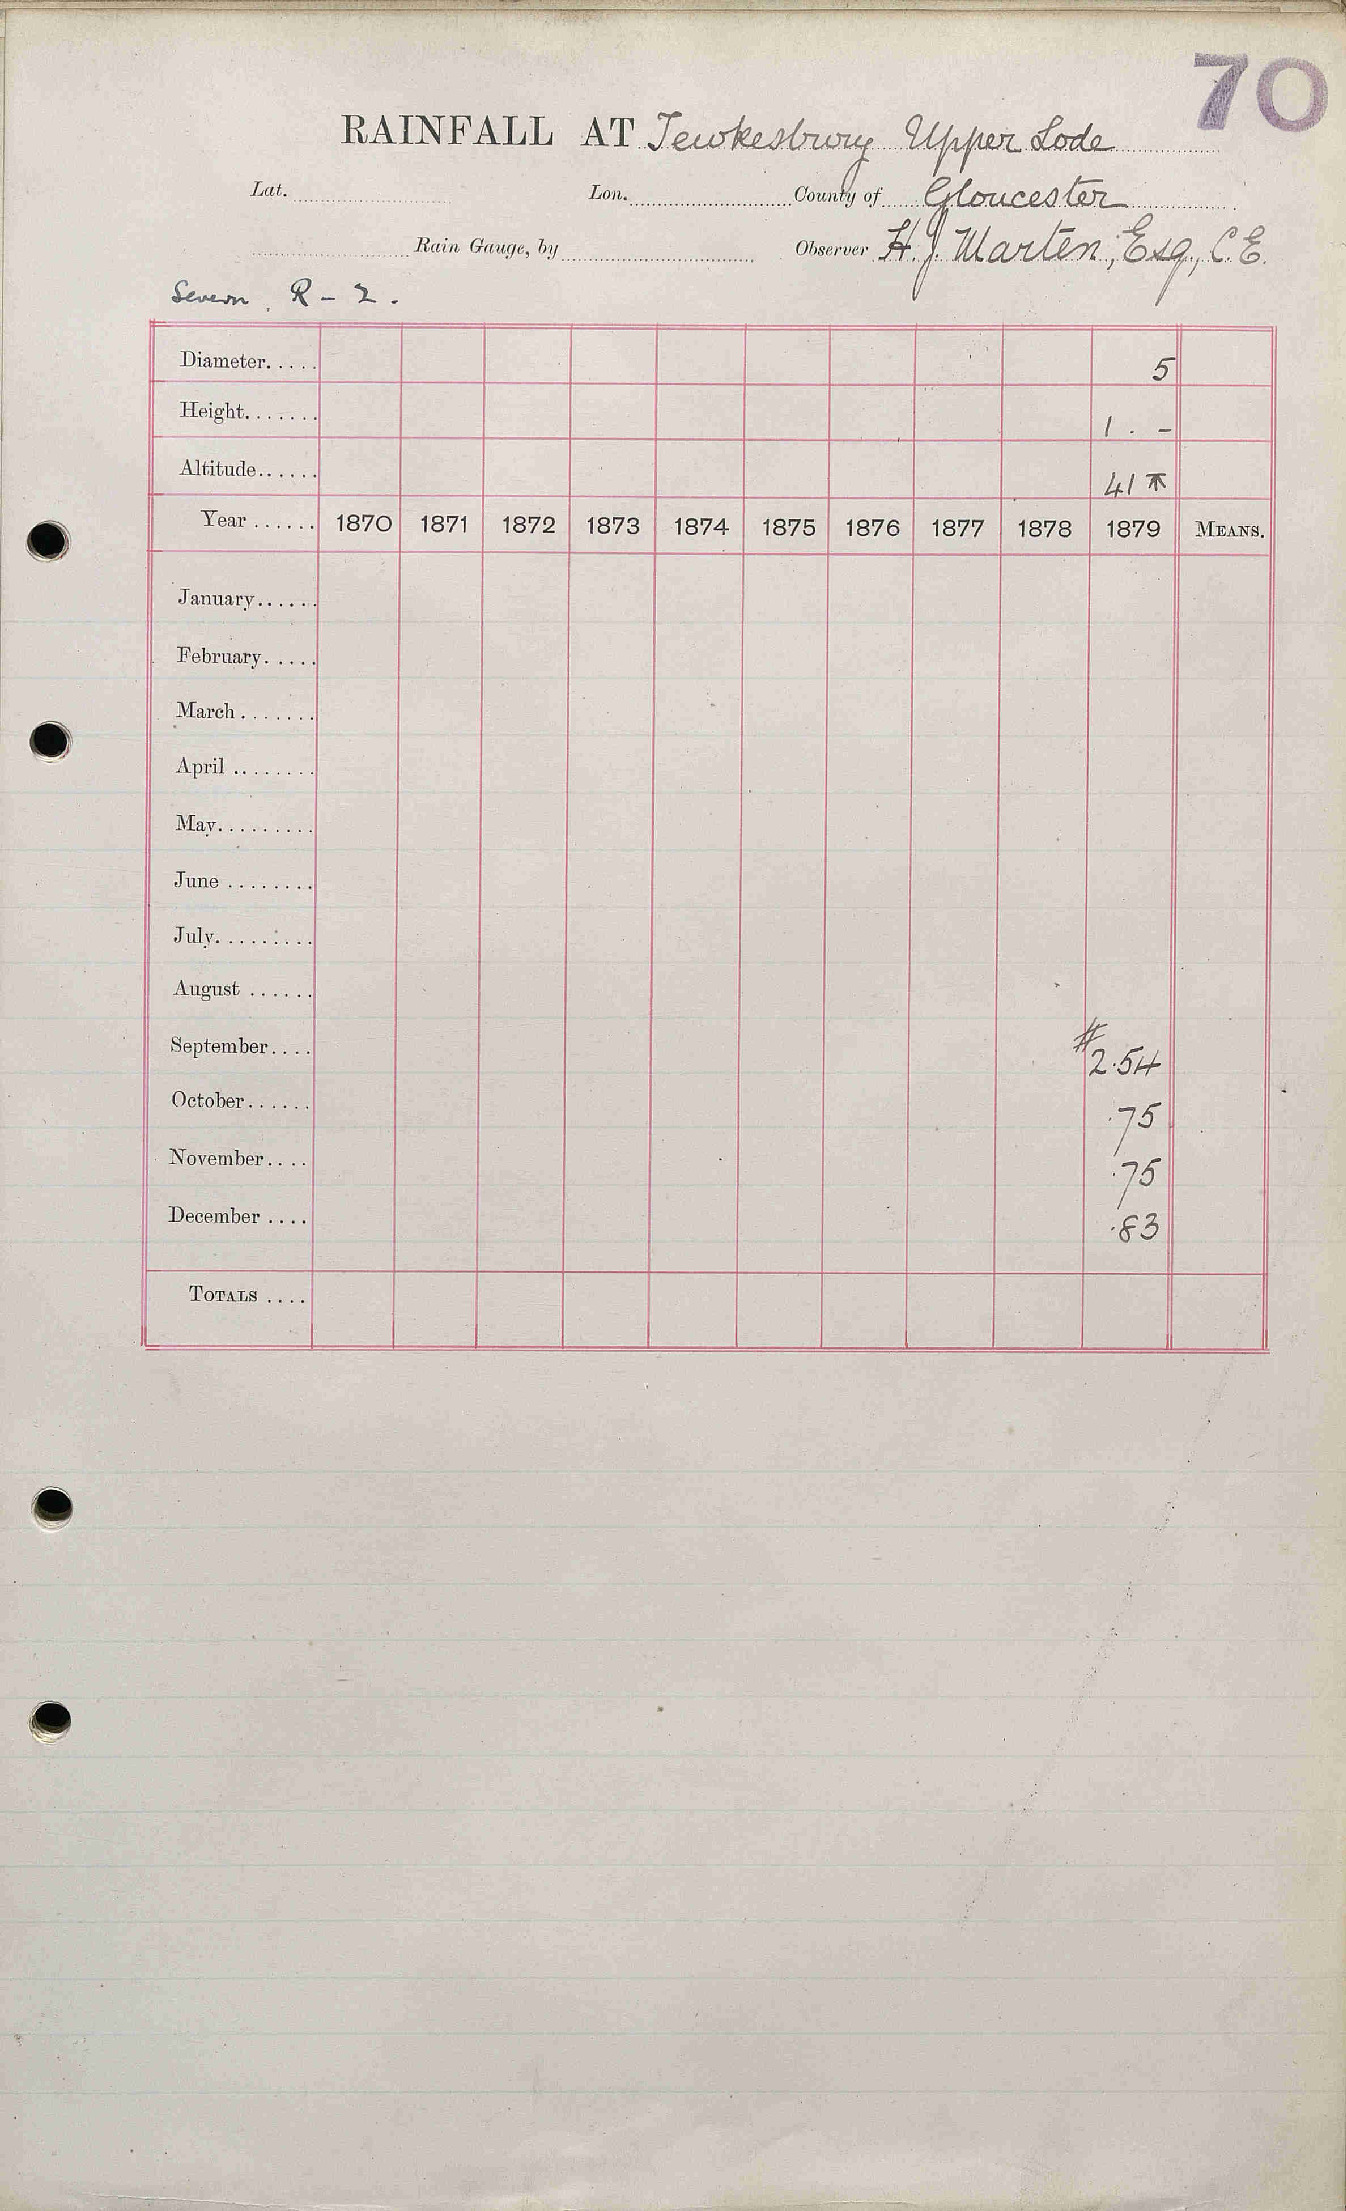 70
RAINFALL AT Tewkesbury Upper Lode
Lat. Lon. County of Gloucester
Rain Gauge, by Observer H. J. Marten, Esq., C.E.
Severn R - 2.
Diameter..... 5
Height....... 1 . -
Altitude...... 41
Year ...... 1870 1871 1872 1873 1874 1875 1876 1877 1878 1879 MEANS.
January......
February.....
March.......
April ........
May.........
June ........
July.........
August ......
September.... #2.54
October...... .75
November.... .75
December .... .83
TOTALS ....